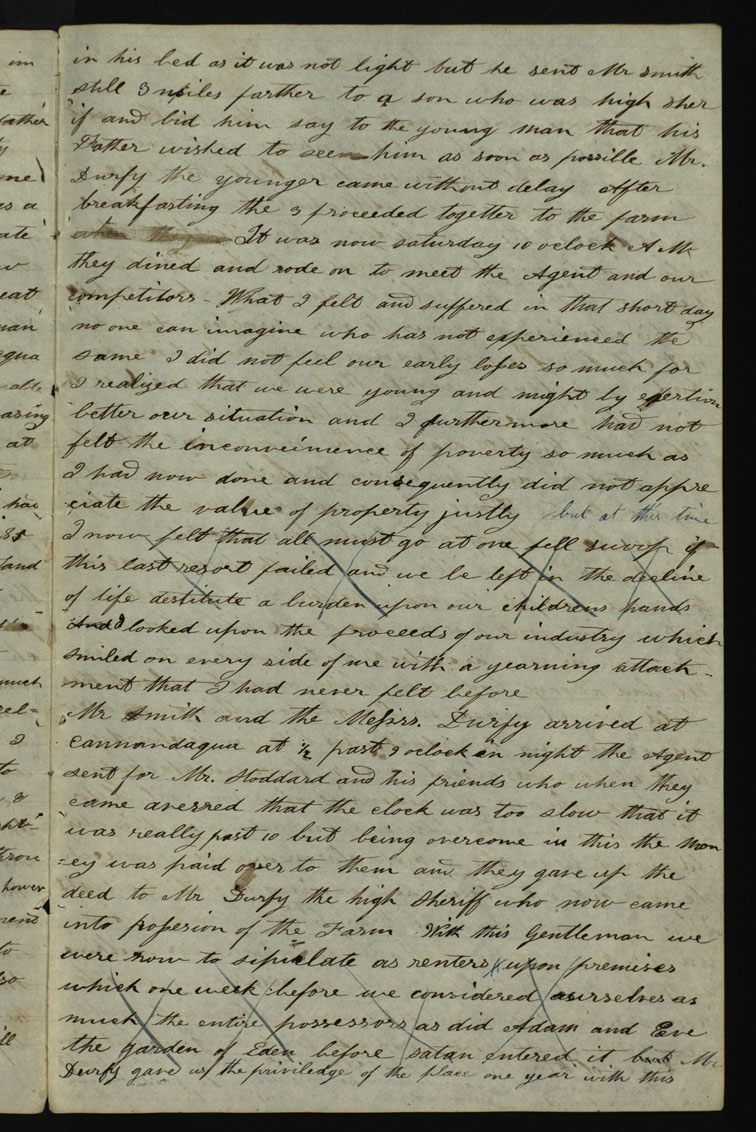 in his bed as it was not light but he sent Mr Smith
still 3 miles farther to a son who was high sher
if and bid him say to the young man that his
Father wished to see him as soon as possille Mr.
Durfy the younger came without delay After
breakfasting the 3 proceeded togetter to the farm
It was now saturday 10 oclock A M
they dined and rode on to meet the Agent and our
competitors - What I felt and suffered in that short day
no one can imagine who has not experienced the
same I did not feel our early losses so much for
I realized that we were young and might by exertion
better our situation and I furthermore had not
felt the inconveinience of poverty so much as
I had now done and consequently did not appre
ciate the value of property justly but at this time
I now felt that all must go at one fell swoop if
this last resort failed and we be left in the decline
of life destitute a burden upon our childrens hands
And I looked upon the proceeds of our industry which
smiled on every side of me with a yearning attach-
ment that I had never felt before
Mr Smith and the Messrs. Durfy arrived at
Cannandaqua at ½ past 9 oclock in night the Agent
sent for Mr. Stoddard and his friends who when they
came averred that the clock was too slow that it
was really past 10 but being overcome in this the mon
=ey was paid over to them and they gave up the
deed to Mr Durfy the high Sheriff who now came
into possesion of the Farm With this Gentleman we
were now to sipulate as renters upon premises
which one week before we considered ourselves as
much the entire possessors as did Adam and Eve
the garden of Eden before satan entered it but Mr
Durfy gave us the priviledge of the place one year with this